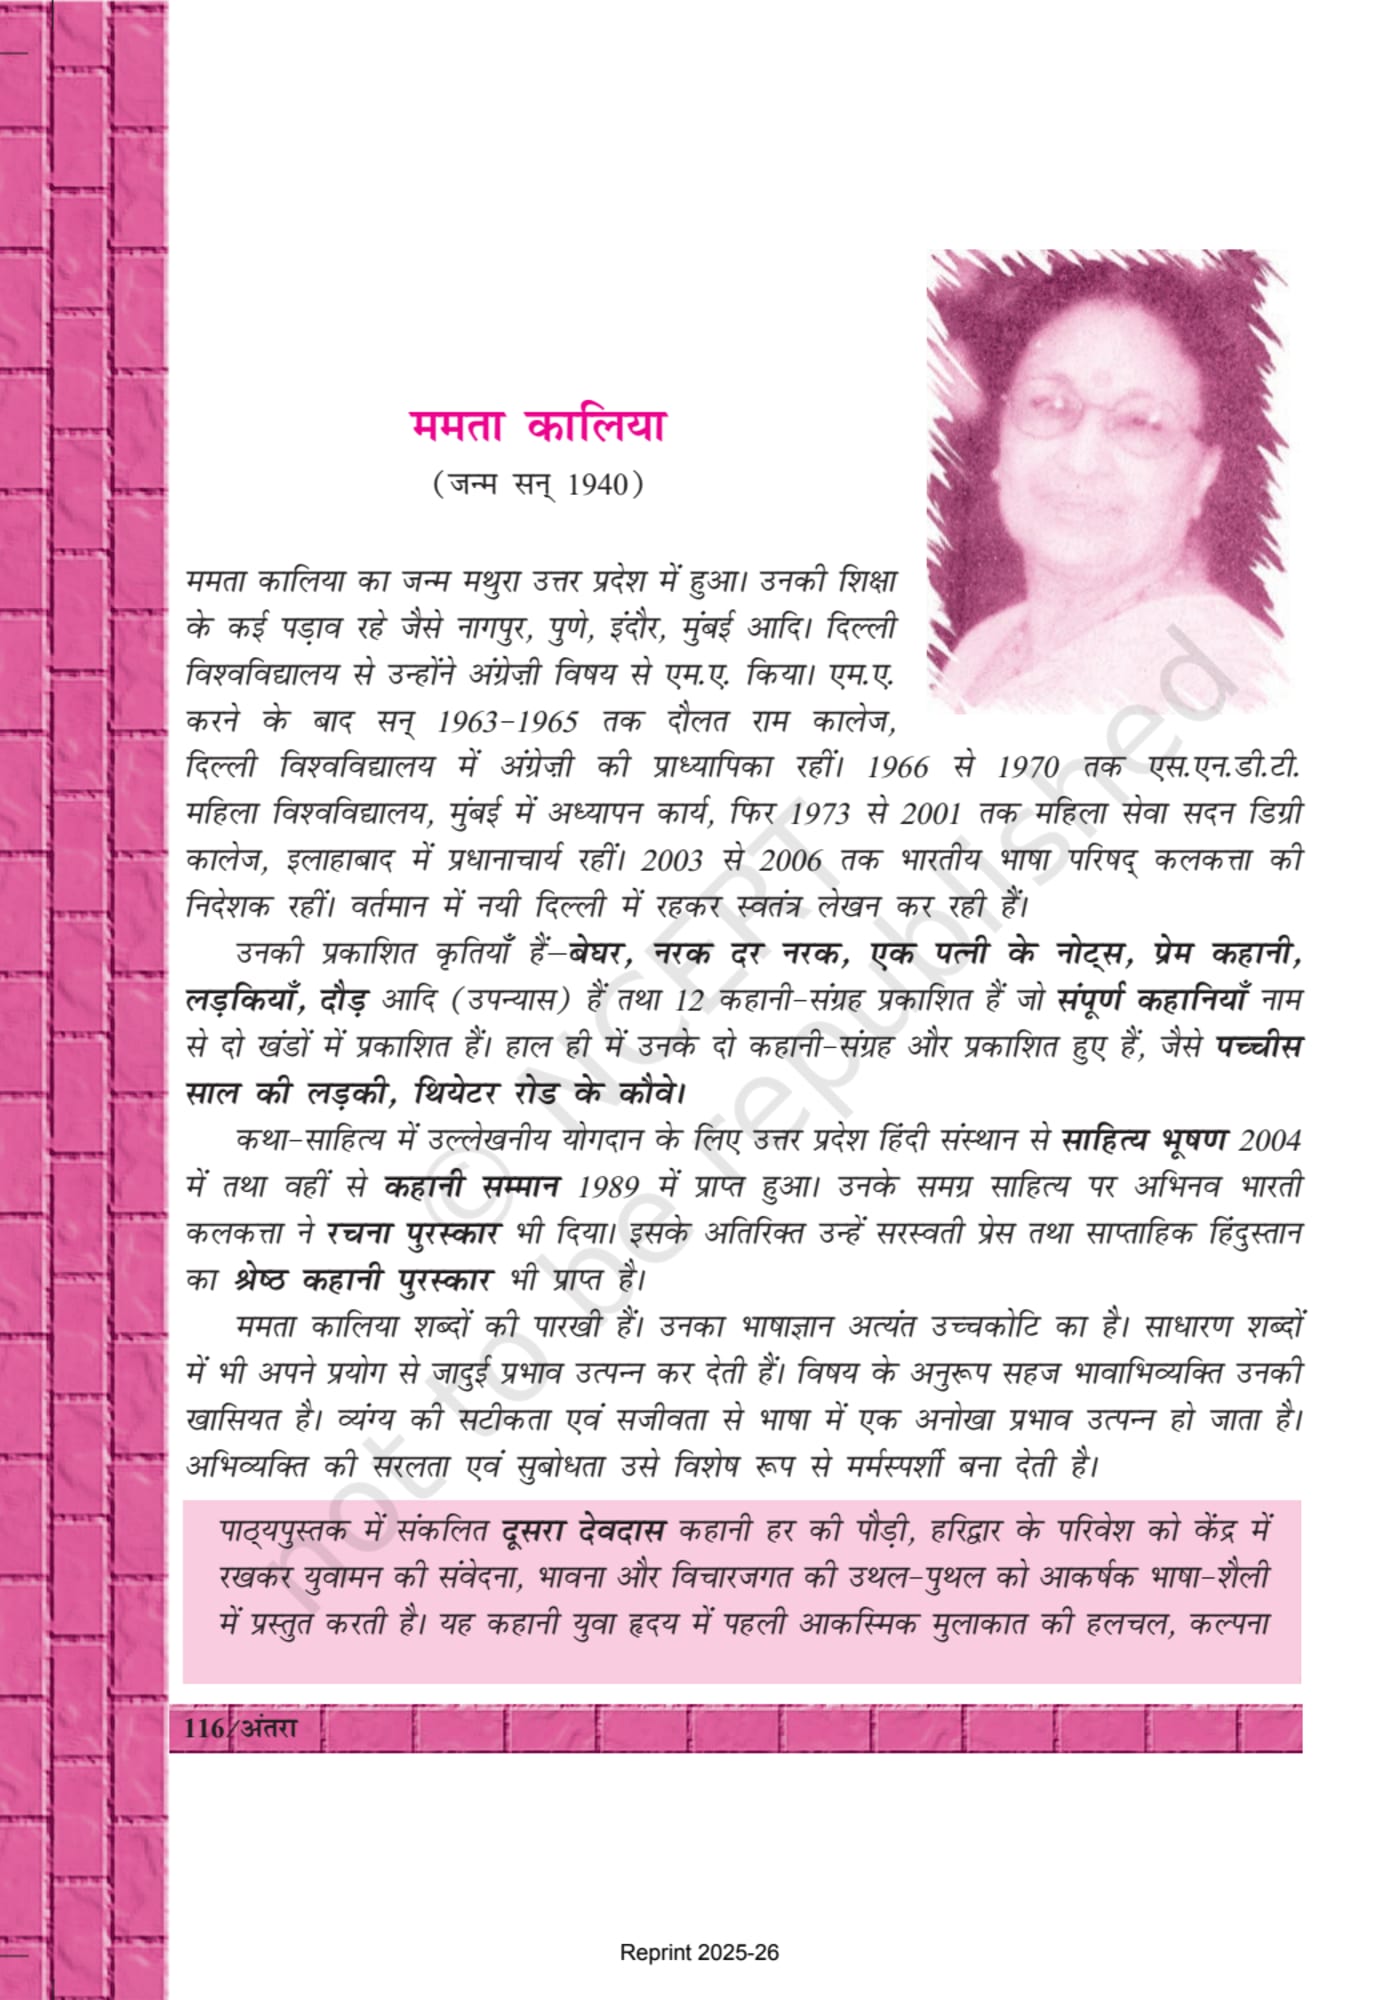 ममता कालिया
(जन्म सन् 1940)
ममता कालिया का जन्म मथुरा उत्तर प्रदेश में हुआ। उनकी शिक्षा
के कई पड़ाव रहे जैसे नागपुर, पुणे, इंदौर, मुंबई आदि। दिल्ली
विश्वविद्यालय से उन्होंने अंग्रेज़ी विषय से एम.ए. किया। एम.ए.
करने के बाद सन् 1963-1965 तक दौलत राम कालेज,
दिल्ली विश्वविद्यालय में अंग्रेज़ी की प्राध्यापिका रहीं। 1966 से 1970 तक एस.एन.डी.टी.
महिला विश्वविद्यालय, मुंबई में अध्यापन कार्य, फिर 1973 से 2001 तक महिला सेवा सदन डिग्री
कालेज, इलाहाबाद में प्रधानाचार्य रहीं। 2003 से 2006 तक भारतीय भाषा परिषद् कलकत्ता की
निदेशक रहीं। वर्तमान में नयी दिल्ली में रहकर स्वतंत्र लेखन कर रही हैं।
उनकी प्रकाशित कृतियाँ हैं–बेघर, नरक दर नरक, एक पत्नी के नोट्स, प्रेम कहानी,
लड़कियाँ, दौड़ आदि (उपन्यास) हैं तथा 12 कहानी-संग्रह प्रकाशित हैं जो संपूर्ण कहानियाँ नाम
से दो खंडों में प्रकाशित हैं। हाल ही में उनके दो कहानी-संग्रह और प्रकाशित हुए हैं, जैसे पच्चीस
साल की लड़की, थियेटर रोड के कौवे।
कथा-साहित्य में उल्लेखनीय योगदान के लिए उत्तर प्रदेश हिंदी संस्थान से साहित्य भूषण 2004
में तथा वहीं से कहानी सम्मान 1989 में प्राप्त हुआ। उनके समग्र साहित्य पर अभिनव भारती
कलकत्ता ने रचना पुरस्कार भी दिया। इसके अतिरिक्त उन्हें सरस्वती प्रेस तथा साप्ताहिक हिंदुस्तान
का श्रेष्ठ कहानी पुरस्कार भी प्राप्त है।
ममता कालिया शब्दों की पारखी हैं। उनका भाषाज्ञान अत्यंत उच्चकोटि का है। साधारण शब्दों
में भी अपने प्रयोग से जादुई प्रभाव उत्पन्न कर देती हैं। विषय के अनुरूप सहज भावाभिव्यक्ति उनकी
खासियत है। व्यंग्य की सटीकता एवं सजीवता से भाषा में एक अनोखा प्रभाव उत्पन्न हो जाता है।
अभिव्यक्ति की सरलता एवं सुबोधता उसे विशेष रूप से मर्मस्पर्शी बना देती है।
पाठ्यपुस्तक में संकलित दूसरा देवदास कहानी हर की पौड़ी, हरिद्वार के परिवेश को केंद्र में
रखकर युवामन की संवेदना, भावना और विचारजगत की उथल-पुथल को आकर्षक भाषा-शैली
में प्रस्तुत करती है। यह कहानी युवा हृदय में पहली आकस्मिक मुलाकात की हलचल, कल्पना
116/अंतरा
© NCERT
not to be republished
Reprint 2025-26